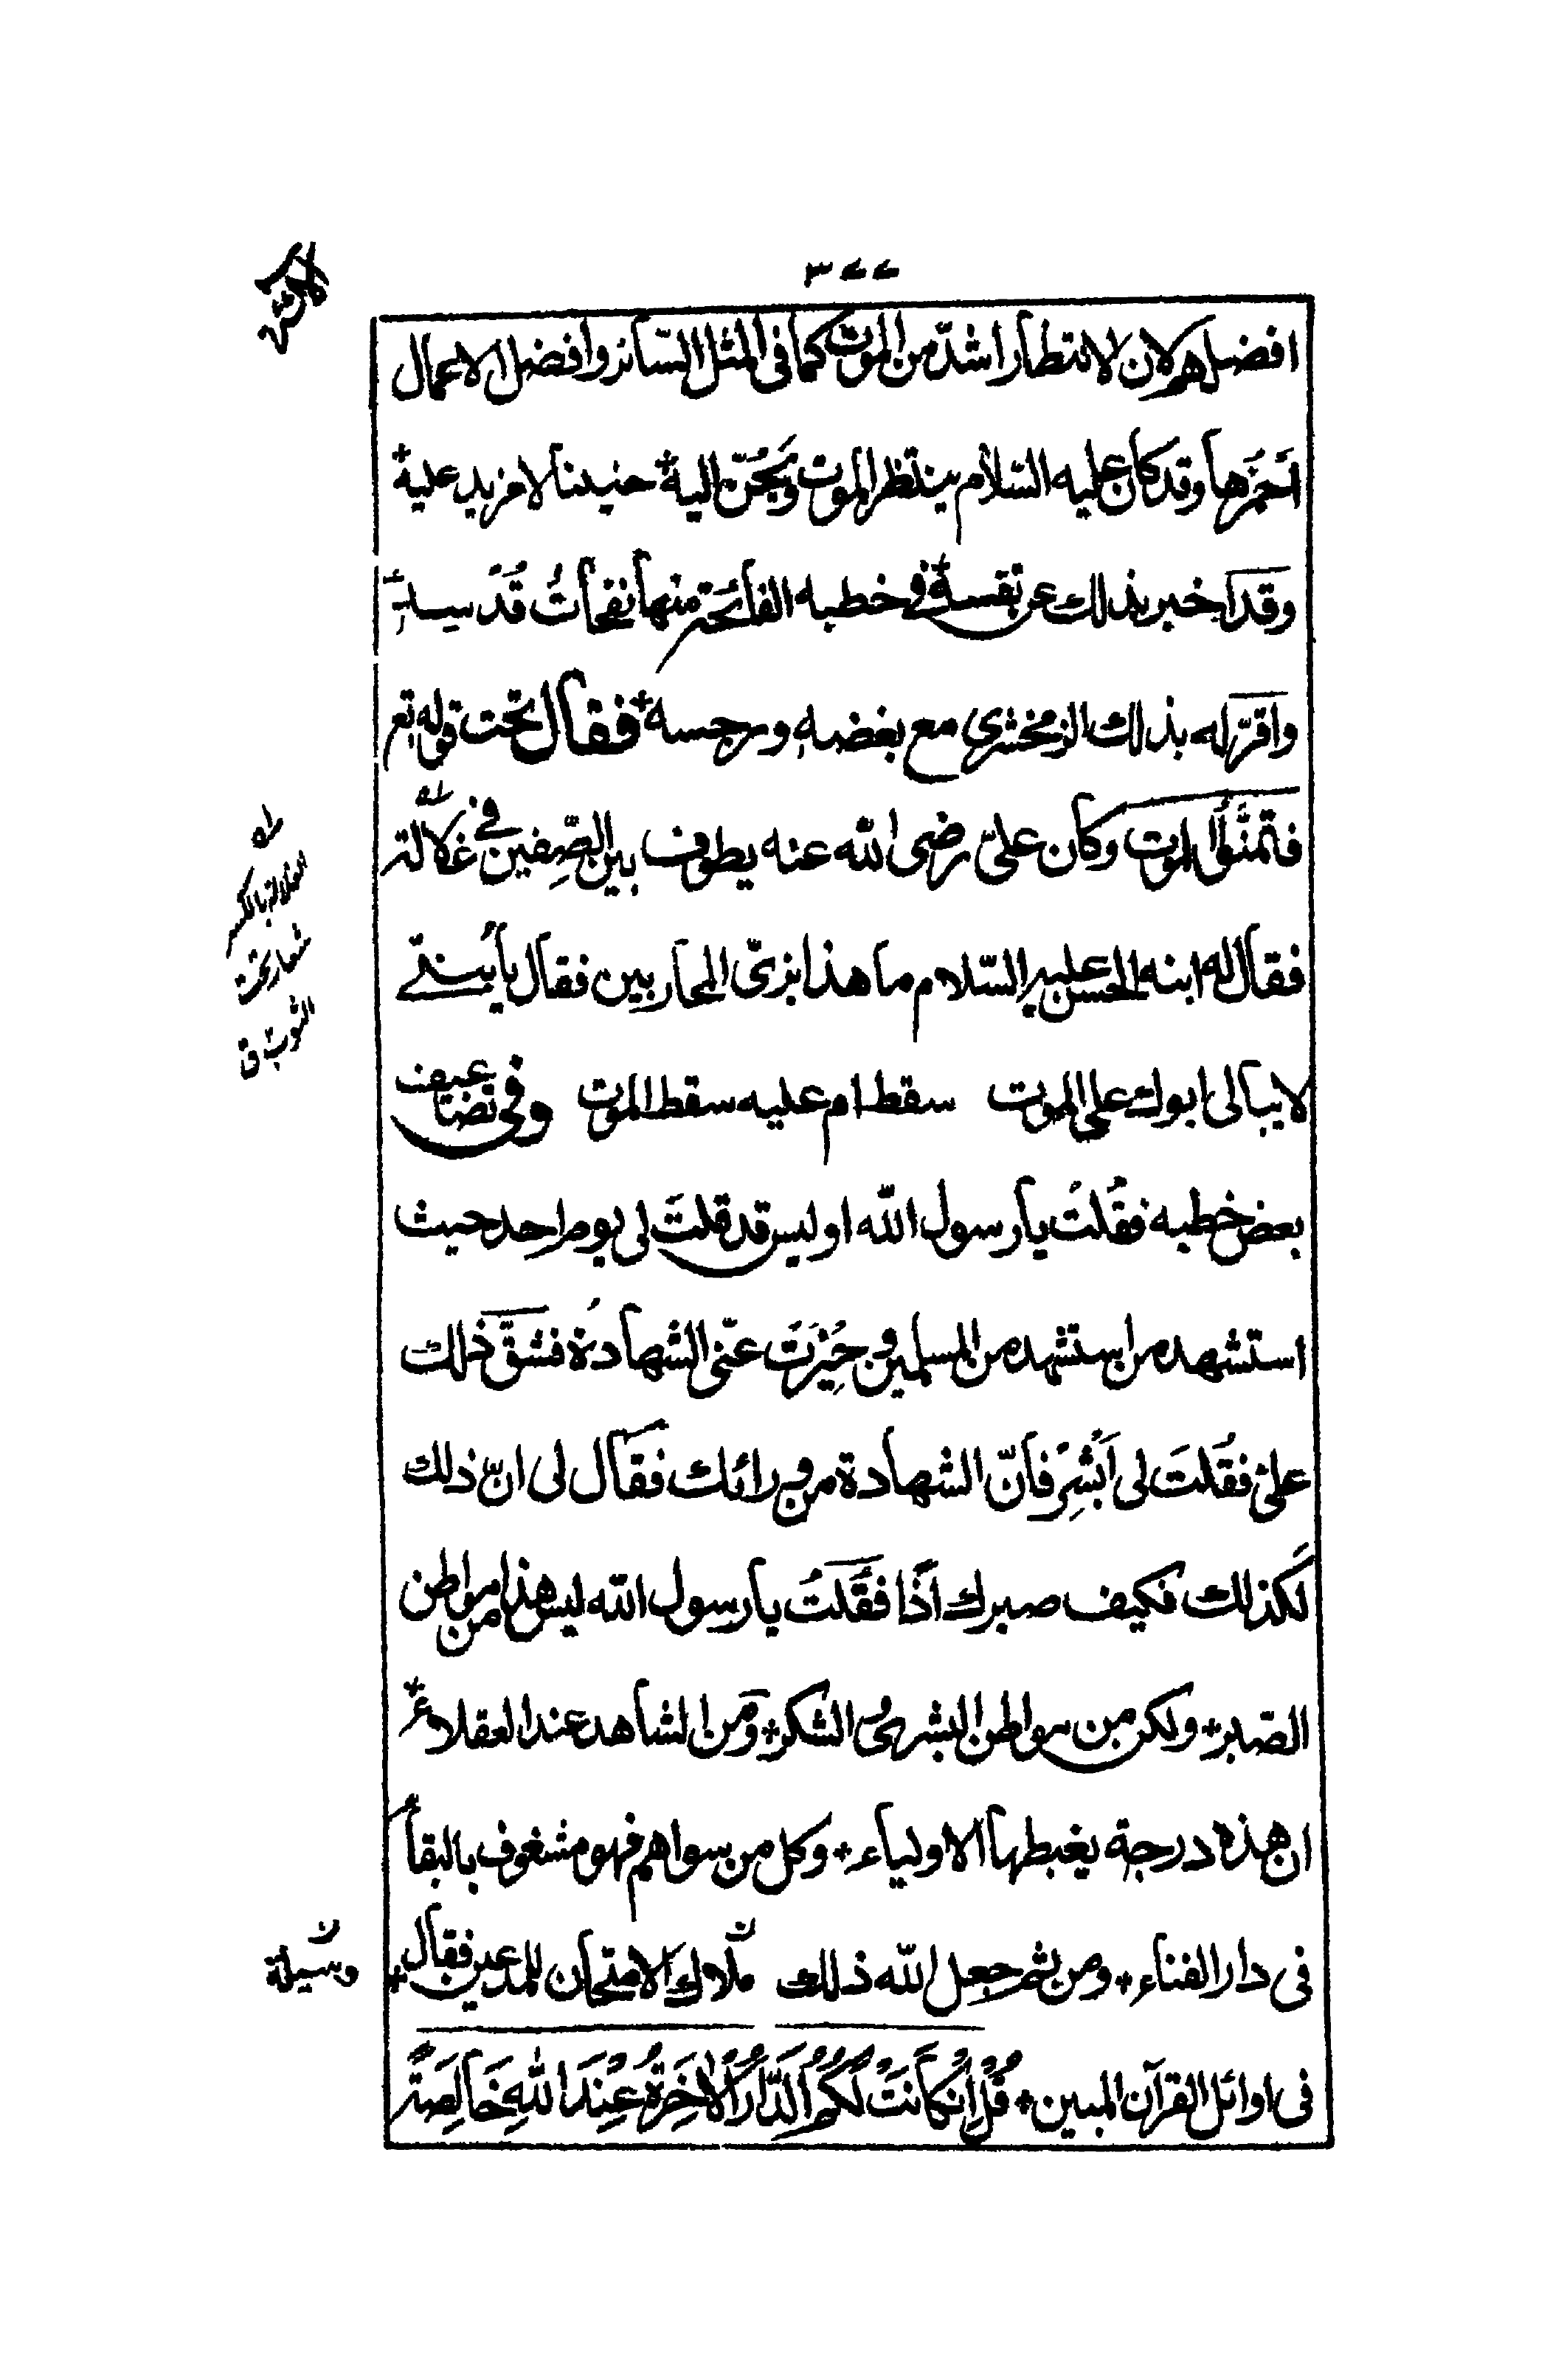 ٣٧٧
افضلهم لان الانتظار اشدّ من الموت كما فى المثل السّائر وافضل الاعمال
اَحمَزها وقد كان عليه السّلام ينتظر الموت ويَحُنّ اليه حنينا لا مزيد عليه
وقد اخبر بذلك عن نفسه فى خطبه الفائحة منها نفحاتٌ قُدسيةٌ
واقرّ له بذلك الزمخشرى مع بغضه ورجسه فقال تحت قوله تعم
فتمَنَّوُا الموت وكان علىّ رضى الله عنه يطوف بين الصِّفين فى غلالة
فقال له ابنه الحسن عليه السّلام ما هذا بزىّ المحاربين فقال يا بُنىّ
لا يبالى ابوك على الموت سقط ام عليه سقط الموت وفى تضاعيف
بعض خطبه فقُلتُ يا رسول الله اوليس قد قلتَ لى يوم احد حيث
استشهد من استشهد من المسلمين وحِيْزَتْ عنّى الشهادةُ فشقّ ذلك
علىّ فقُلتَ لى اَبْشِرْ فانّ الشهادة من ورائك فقال لى انّ ذلك
لَكذلك فكيف صبرك اذًا فقُلتُ يا رسول الله ليس هذا من مواطن
الصّبر ولكن من مواطن البشرىٰ والشكر ومن الشاهد عند العقلاء
ان هذه درجة يغبطها الاولياء وكل من سواهم فهو مشغوف بالبقاء
فى دار الفناء ومن ثم جعل الله ذلك ملاك الامتحان للمدعين فقال
فى اوائل القرآن المبين قُلْ اِنْ كَانَتْ لَكُمُ الدَّارُ الْاٰخِرَةُ عِنْدَ اللّٰهِ خَالِصَةً
الغلالة بالكسر
شعار تحت
الثوب ق
ن
وسيلة